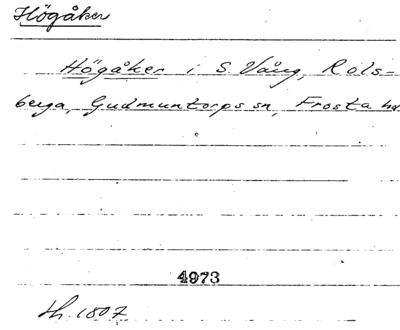 Högåker
Högåker i S. Vång, Rols-
berga, Gudmuntorps sn, Frosta hd
4973
Lh. 1807